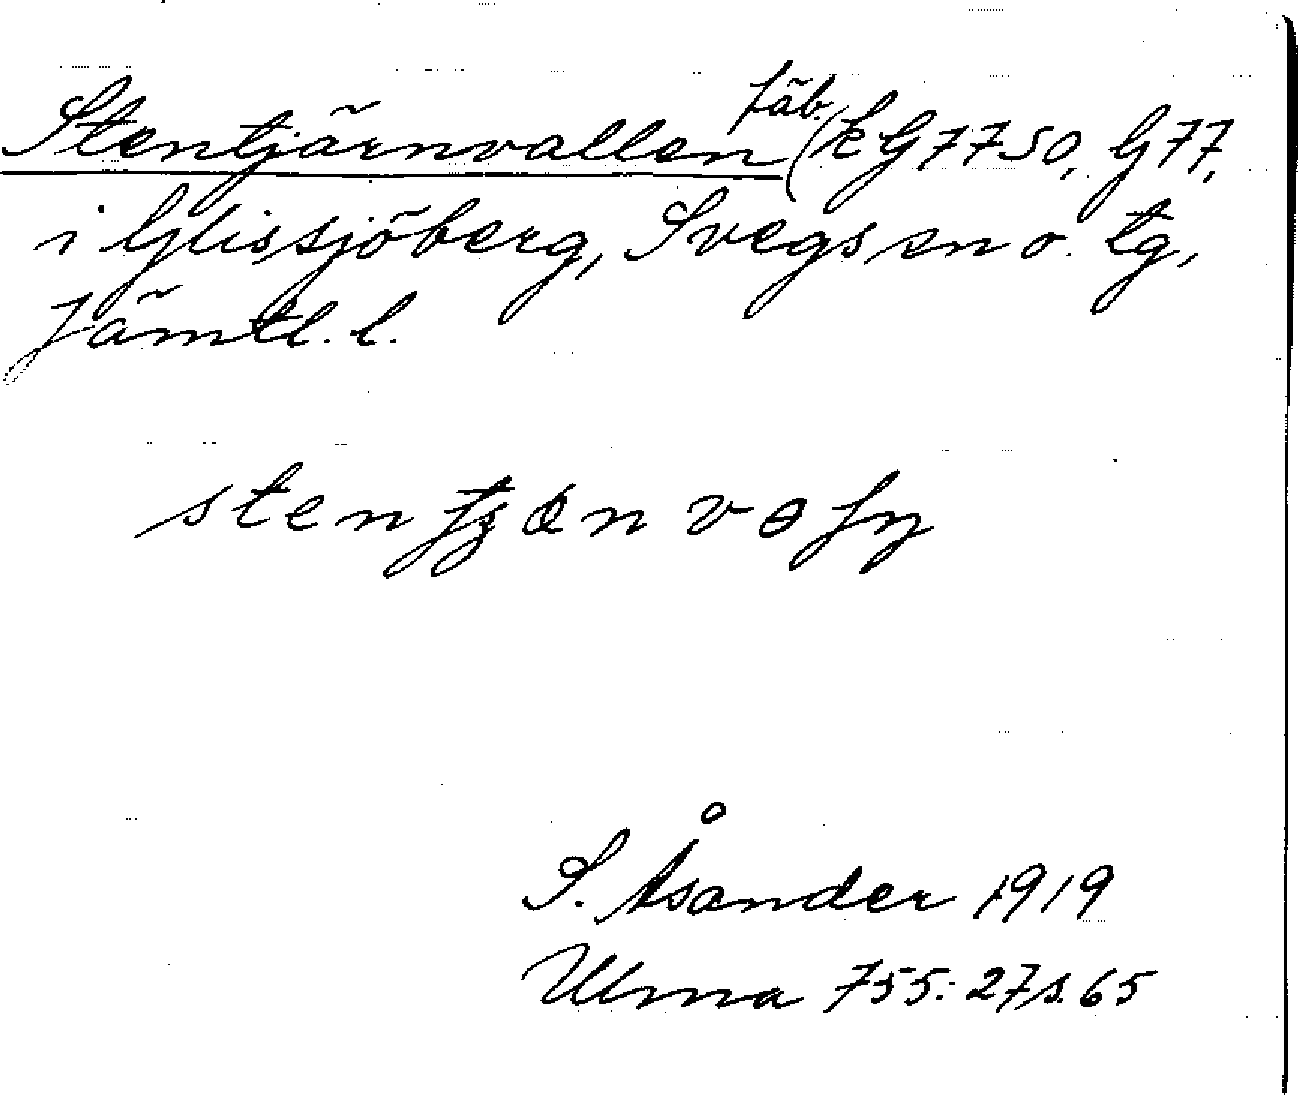 Stentjärnvallen fäb. (k G 7750, G 77,
i Glissjöberg, Svegs sn o. tg,
Jämtl. l.
S. Åsander 1919
Ulma 755: 27 s. 65